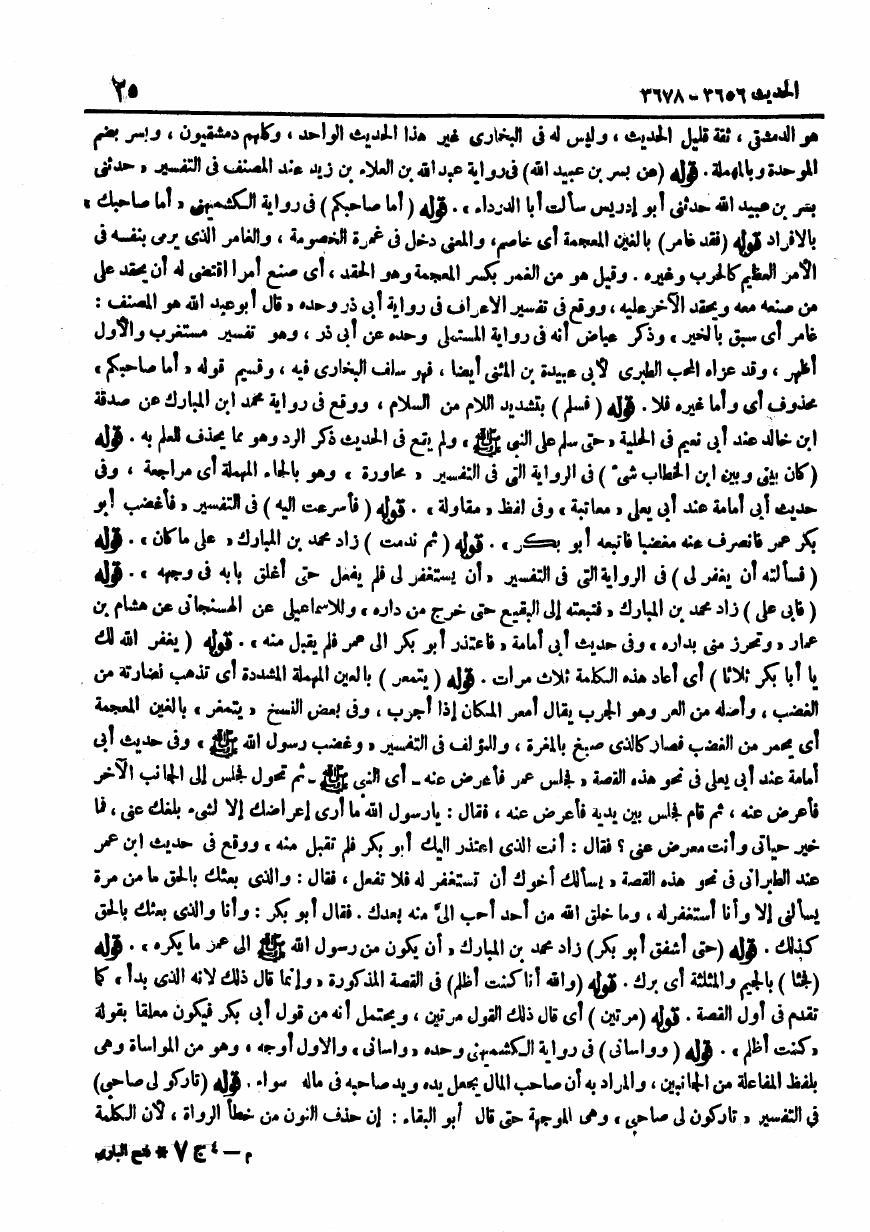 الحديث ٣٦٥٦ - ٣٦٧٨
٢٥
هو الدمشقى ، ثقة قليل الحديث ، وليس له فى البخارى غير هذا الحديث الواحد ، وكلهم دمشقيون ، وبسر بضم
الموحدة وبالمهملة . قوله ( عن بسر بن عبيد الله ) فى رواية عبد الله بن العلاء بن زيد عند المصنف فى التفسير « حدثنى
بسر بن عبيد الله حدثنى أبو إدريس سألت أبا الدرداء » . قوله ( أما صاحبكم ) فى رواية الكشميهنى « أما صاحبك »
بالافراد قوله ( فقد غامر ) بالغين المعجمة أى خاصم ، والمعنى دخل فى غمرة الخصومة ، والغامر الذى يرمى بنفسه فى
الأمر العظيم كالحرب وغيره . وقيل هو من الغمر بكسر المعجمة وهو الحقد ، أى صنع أمرا اقتضى له أن يحقد على
من صنعه معه ويحقد الآخر عليه ، ووقع فى تفسير الاعراف فى رواية أبى ذر وحده « قال أبو عبد الله هو المصنف :
غامر أى سبق بالخير » وذكر عياض أنه فى رواية المستملى وحده عن أبى ذر ، وهو تفسير مستغرب والأول
أظهر ، وقد عزاه المحب الطبرى لأبى عبيدة بن المثنى أيضا ، فهو سلف البخارى فيه ، وقسيم قوله « أما صاحبكم »
محذوف أى وأما غيره فلا . قوله ( فسلم ) بتشديد اللام من السلام ، ووقع فى رواية محمد ابن المبارك عن صدقة
ابن خالد عند أبى نعيم فى الحلية « حتى سلم على النبى ﷺ » ولم يقع فى الحديث ذكر الرد وهو مما يحذف للعلم به . قوله
( كان بينى وبين ابن الخطاب شىء ) فى الرواية التى فى التفسير « محاورة » وهو بالحاء المهملة أى مراجعة ، وفى
حديث أبى أمامة عند أبى يعلى « معاتبة » وفى لفظ « مقاولة » . قوله ( فأسرعت اليه ) فى التفسير « فأغضب أبو
بكر عمر فانصرف عنه مغضبا فاتبعه أبو بكر » . قوله ( ثم ندمت ) زاد محمد بن المبارك « على ما كان » . قوله
( فسألته أن يغفر لى ) فى الرواية التى فى التفسير « أن يستغفر لى فلم يفعل حتى أغلق بابه فى وجهه » . قوله
( فابى على ) زاد محمد بن المبارك « فتبعته إلى البقيع حتى خرج من داره » وللاسماعيلى عن الهسنجانى عن هشام بن
عمار « وتحرز منى بداره » وفى حديث أبى أمامة « فاعتذر أبو بكر الى عمر فلم يقبل منه » . قوله ( يغفر الله لك
يا أبا بكر ثلاثا ) أى أعاد هذه الكلمة ثلاث مرات . قوله ( يتمعر ) بالعين المهملة المشددة أى تذهب نضارته من
الغضب ، وأصله من العر وهو الجرب يقال أمعر المكان إذا أجرب ، وفى بعض النسخ « يتمغر » بالغين المعجمة
أى يحمر من الغضب فصار كالذى صبغ بالمغرة ، وللمؤلف فى التفسير « وغضب رسول الله ﷺ » وفى حديث أبى
أمامة عند أبى يعلى فى نحو هذه القصة « فجلس عمر فأعرض عنه - أى النبى ﷺ - ثم تحول فجلس إلى الجانب الآخر
فأعرض عنه ، ثم قام فجلس بين يديه فأعرض عنه ، فقال : يارسول الله ما أرى إعراضك إلا لشىء بلغك عنى ، فما
خير حياتى وأنت معرض عنى ؟ فقال : أنت الذى اعتذر اليك أبو بكر فلم تقبل منه » ووقع فى حديث ابن عمر
عند الطبرانى فى نحو هذه القصة « يسألك أخوك أن تستغفر له فلا تفعل ، فقال : والذى بعثك بالحق ما من مرة
يسألنى إلا وأنا أستغفر له ، وما خلق الله من أحد أحب الىّ منه بعدك . فقال أبو بكر : وأنا والذى بعثك بالحق
كذلك . قوله ( حتى أشفق أبو بكر ) زاد محمد بن المبارك « أن يكون من رسول الله ﷺ الى عمر ما يكره » . قوله
( فجثا ) بالجيم والمثلثة أى برك . قوله ( والله أنا كنت أظلم ) فى القصة المذكورة « وإنما قال ذلك لانه الذى بدأ » كما
تقدم فى أول القصة . قوله ( مرتين ) أى قال ذلك القول مرتين ، ويحتمل أنه من قول أبى بكر فيكون معلقا بقوله
« كنت أظلم » . قوله ( وواسانى ) فى رواية الكشميهنى وحده « واسانى » والاول أوجه ، وهو من المواساة وهى
بلفظ المفاعلة من الجانبين ، والمراد به أن صاحب المال يجعل يده ويد صاحبه فى ماله سواء . قوله ( تاركو لى صاحبى )
فى التفسير « تاركون لى صاحبى » وهى الموجهة حتى قال أبو البقاء : إن حذف النون من خطأ الرواة ، لأن الكلمة
م - ٤ ج ٧ * فتح البارى